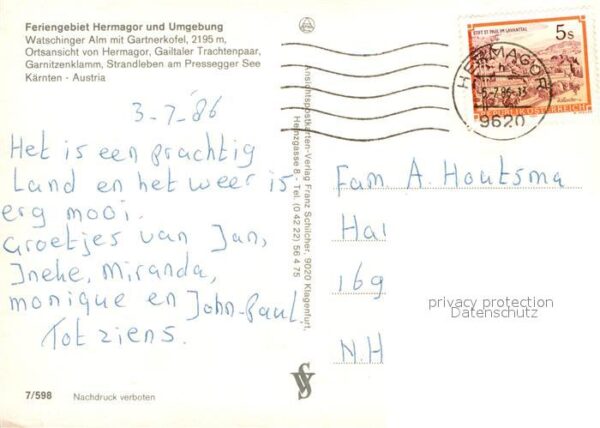 Feriengebiet Hermagor und Umgebung
Watschinger Alm mit Gartnerkofel, 2195 m,
Ortsansicht von Hermagor, Gailtaler Trachtenpaar,
Garnitzenklamm, Strandleben am Pressegger See
Kärnten - Austria
3-7-'86
Het is een prachtig
Land en het weer is
erg mooi.
Groetjes van Jan,
Ineke, Miranda,
monique en John-Paul
Tot ziens.
7/598 Nachdruck verboten
Ansichtspostkarten-Verlag Franz Schilcher, 9020 Klagenfurt,
Heinzgasse 8 - Tel. (0 42 22) 56 4 75
STIFT ST. PAUL IM LAVANTTAL
5s
REPUBLIK ÖSTERREICH
HERMAGOR
9620
Fam A. Houtsma
Hal
169
N.H
privacy protection
Datenschutz